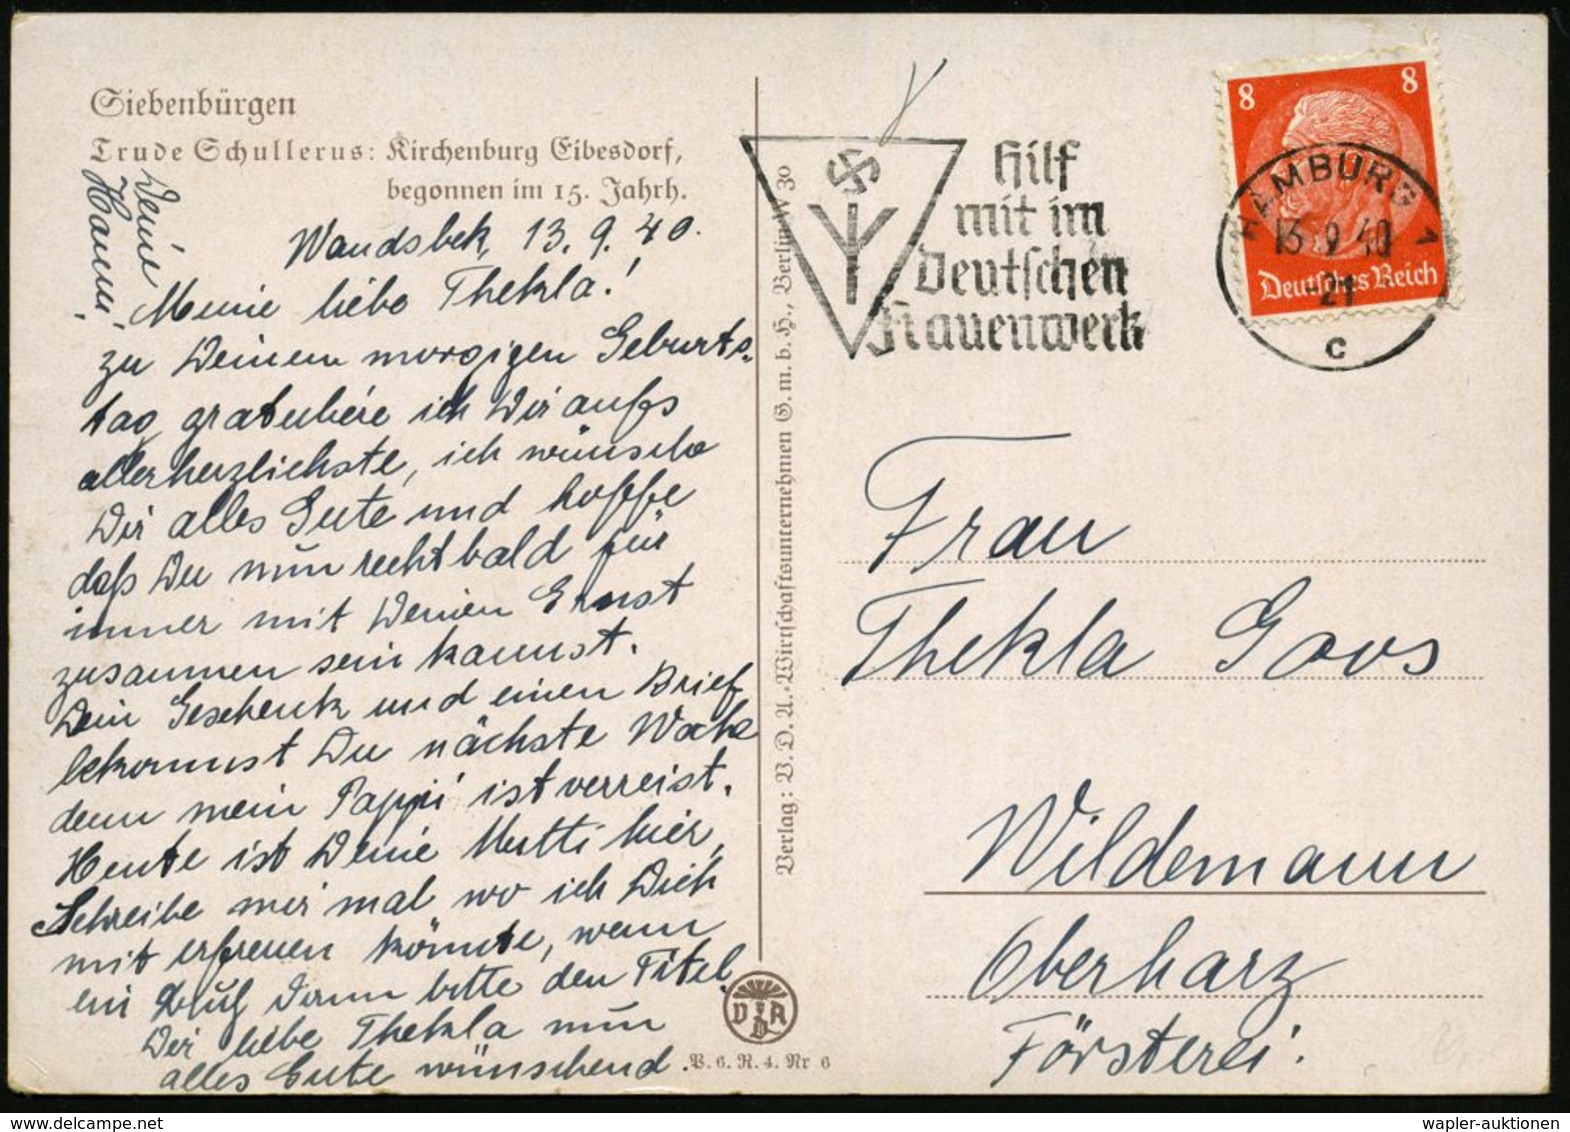 Siebenbürgen
Trude Schullerus: Kirchenburg Eibesdorf,
begonnen im 15. Jahrh.
Wandsbek, 13.9.40.
Meine liebe Thekla!
zu Deinem morgigen Geburts-
tag gratuliere ich Dir aufs
allerherzlichste, ich wünsche
Dir alles Gute und hoffe
daß Du nun recht bald für
immer mit Deinen Ernst
zusammen sein kannst.
Dein Geschenk und einen Brief
bekommst Du nächste Woche
denn mein Pappi ist verreist.
Heute ist Deine Mutti hier,
Schreibe mir mal wo ich Dich
mit erfreuen könnte, wenn
ein Buch dann bitte den Titel.
Dir liebe Thekla nun
alles Gute wünschend.
Deine
Hanni.
Verlag: V.D.A.-Wirtschaftsunternehmen G.m.b.H., Berlin W 30
VDA
V. 6. R. 4. Nr 6
Hilf
mit im
Deutschen
Frauenwerk
8 8
Deutsches Reich
HAMBURG 1
13 9 40
21
c
Frau
Thekla Goos
Wildemann
Oberharz
Försterei.
wapler-auktionen